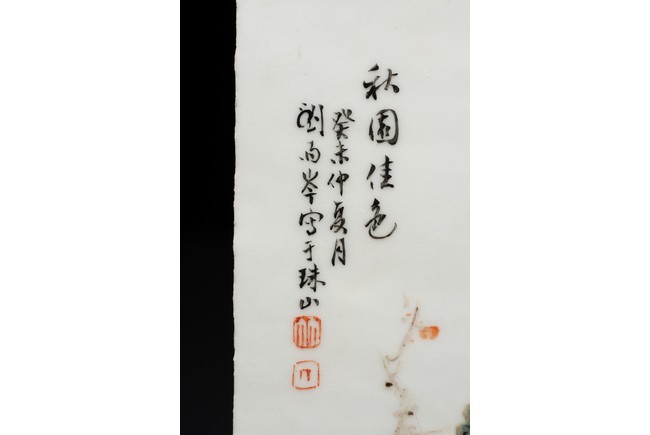 秋園佳色
癸未仲夏月
劉雨岑写于珠山